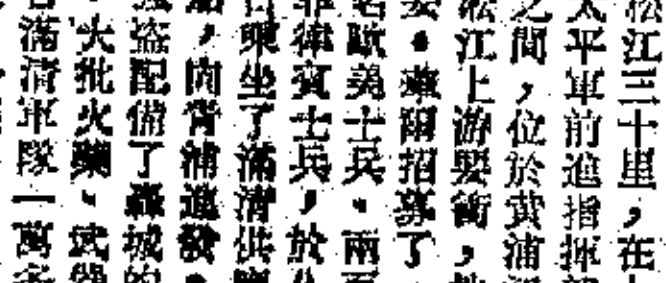 淞江三十里，在
太平軍前進指揮
之間，位於黃浦
淞江上游要衝，
華爾招募了
名歐美士兵、兩
菲律賓士兵，於
乘坐了滿清供
，向青浦進發。
盜配備了轟城的
、大批火藥、武器
滿清軍隊一萬